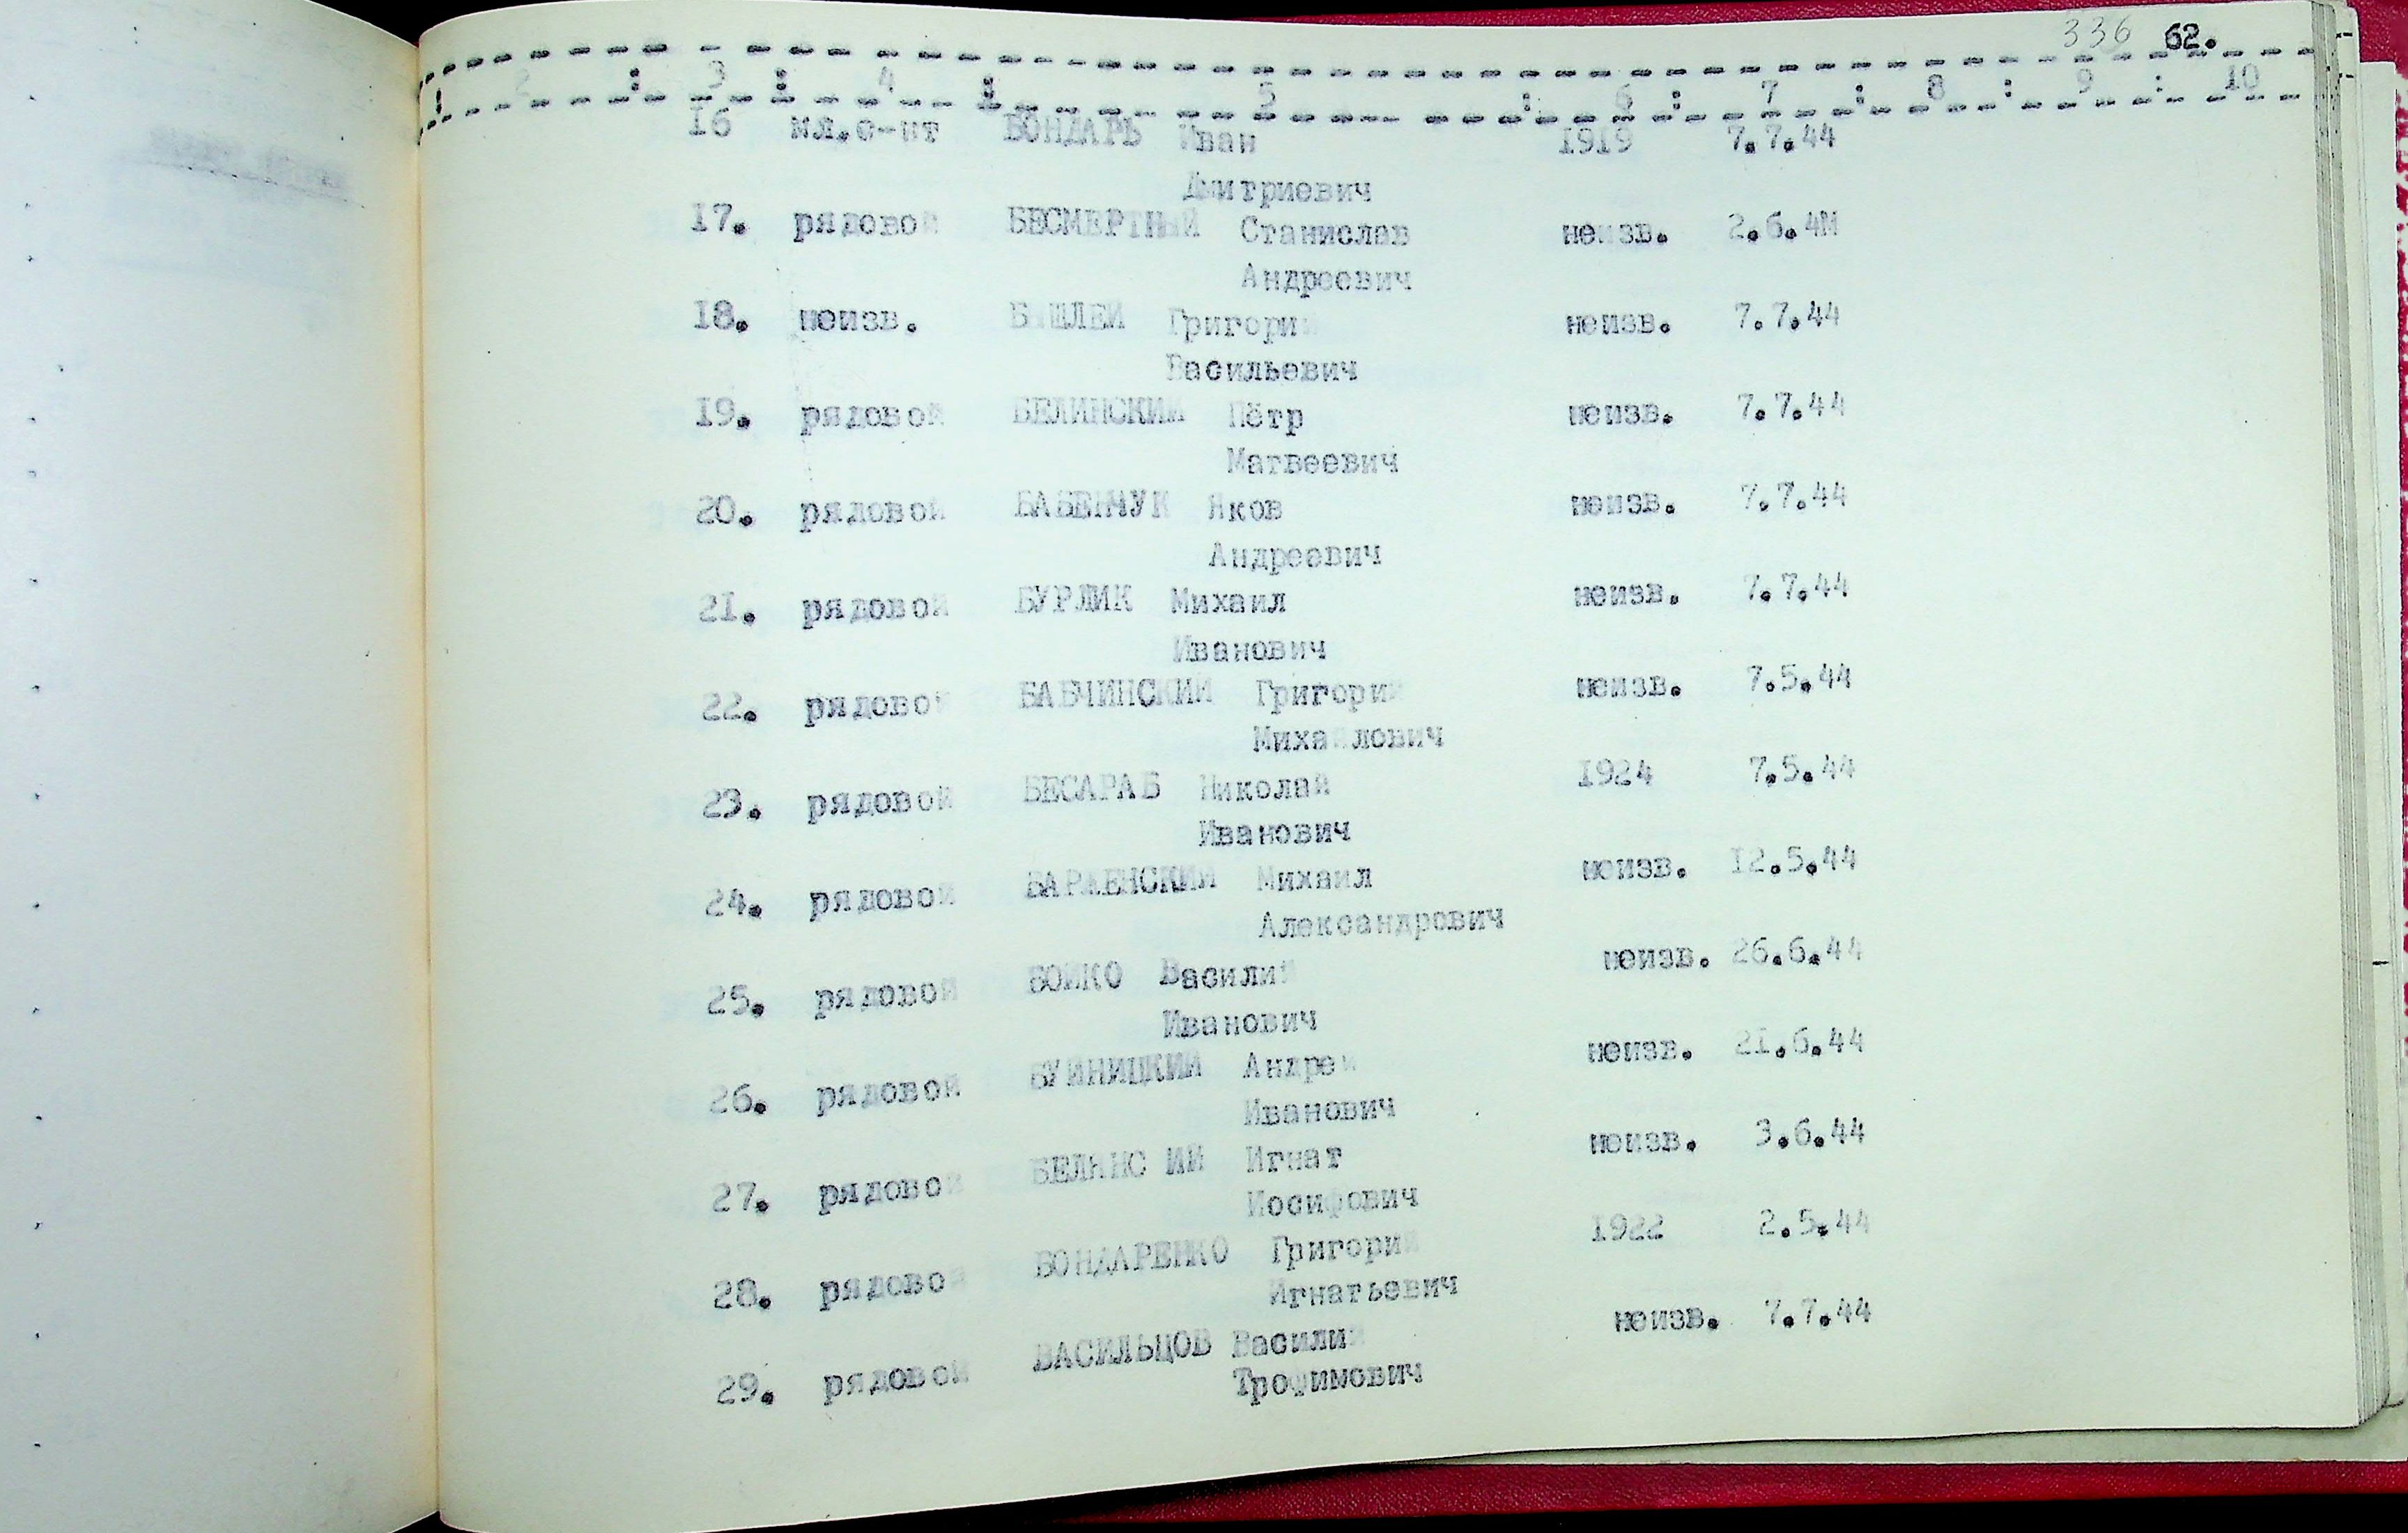 336 62.
2 : 3 : 4 : 5 : 6 : 7 : 8 : 9 : 10
16 мл.с-нт БОНДАРЬ Иван 1919 7.7.44
Дмитриевич
17. рядовой БЕСМЕРТНЫЙ Станислав неизв. 2.6.44
Андреевич
18. неизв. Григорий неизв. 7.7.44
Васильевич
19. рядовой БЕЛИНСКИЙ Пётр неизв. 7.7.44
Матвеевич
20. рядовой БАБЕНЧУК Яков неизв. 7.7.44
Андреевич
21. рядовой БУРЛИК Михаил неизв. 7.7.44
Иванович
22. рядовой БАБЧИНСКИЙ Григорий неизв. 7.5.44
Михайлович
23. рядовой БЕСАРАБ Николай 1924 7.5.44
Иванович
24. рядовой Михаил неизв. 12.5.44
Александрович
25. рядовой БОЙКО Василий неизв. 26.6.44
Иванович
26. рядовой БУЙНИЦКИЙ Андрей неизв. 21.6.44
Иванович
27. рядовой Игнат неизв. 3.6.44
Иосифович
28. рядовой БОНДАРЕНКО Григорий 1922 2.5.44
Игнатьевич
29. рядовой ВАСИЛЬЦОВ Василий неизв. 7.7.44
Трофимович